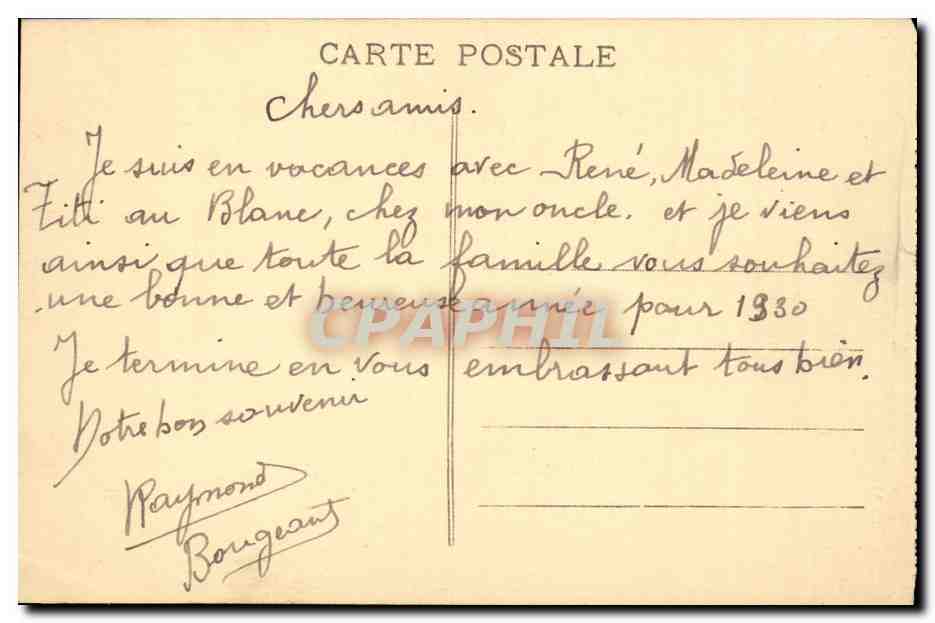 CARTE POSTALE
Chers amis.
Je suis en vacances avec René, Madeleine et
Titi au Blanc, chez mon oncle. et je viens
ainsi que toute la famille vous souhaitez
une bonne et heureuse année pour 1930
CPAPHIL
Je termine en vous embrassant tous bien.
Notre bon souvenir
Raymond
Bougeant